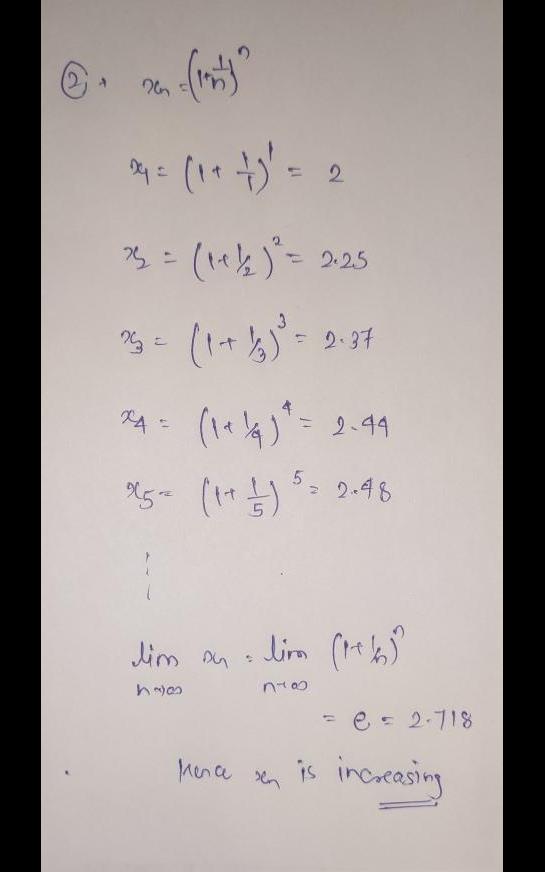 ② . xn = (1+1/n)^n
x1 = (1 + 1/1)^1 = 2
x2 = (1+1/2)^2 = 2.25
x3 = (1+1/3)^3 = 2.37
x4 = (1+1/4)^4 = 2.44
x5 = (1+1/5)^5 = 2.48
⋮
lim n→∞ xn = lim n→∞ (1+1/n)^n
= e = 2.718
Hence xn is increasing